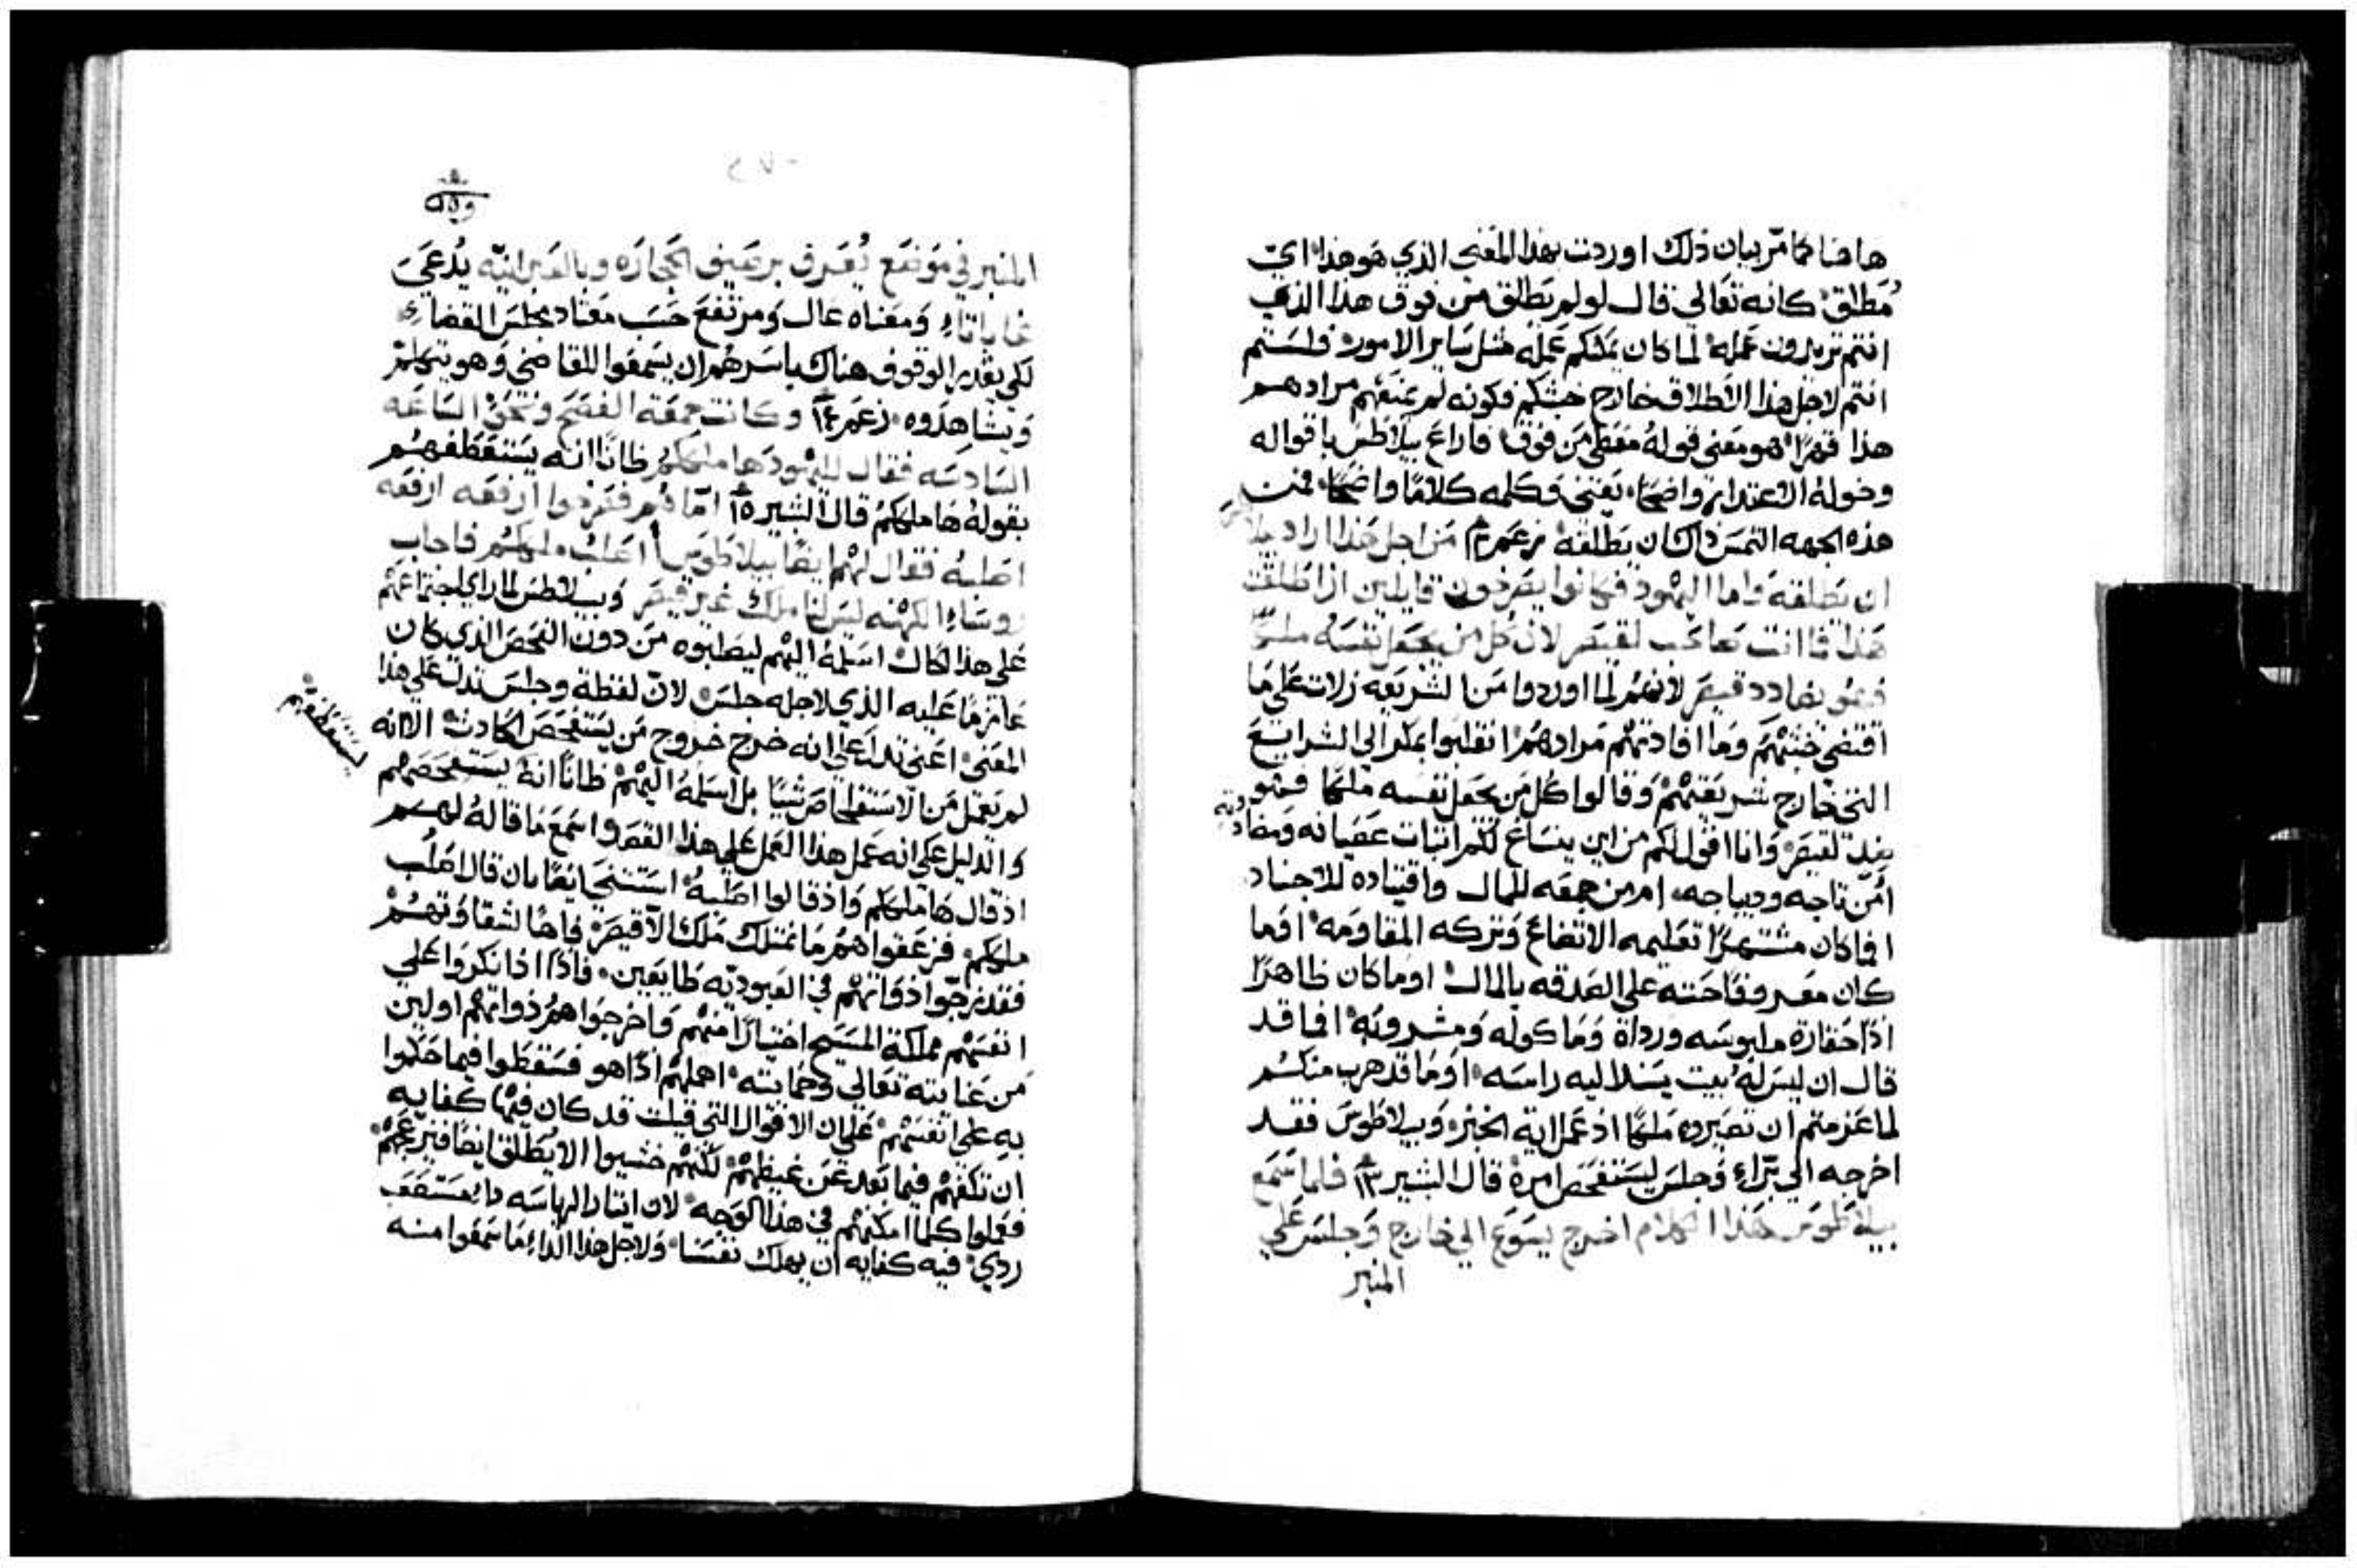 هاهنا كما مرّ بيان ذلك اوردت بهذا المعني الذي هو هذا ايّ
مُطلق كانه تعالي قال لو لم تطلق من فوق هذا الذي
انتم تريدون عمله لما كان يمكنكم عمله مثل ساير الامور ولستم
انتم لاجل هذا الاطلاق خارج خبثكم فكونه لم يمنعهم مرادهم
هذا قهرًا هو معني قوله معطي من فوق فاراع بيلاطس باقواله
وخوله الاعتدار واضحًا يعني وكلمه كلامًا واضحًا فمن
هذه الجهه التمس ذاك ان يطلقه زعم ١٢ من اجل هذا اراد بيلاطس
ان يطلقه واما اليهود فكانوا يصرخون قايلين ان اطلقت
هذا فما انت صاحب لقيصر لان كل من يجعل نفسه ملكًا
فهو يضادد قيصر لانهم لما اوردوا من الشريعه زلات علي ما
اقتضي خبثهم وما افادتهم مرادهم انقلبوا بمكر الي الشرايع
التي خارج شريعتهم وقالوا كل من يجعل نفسه ملكًا فهو
ضدّ لقيصر وانا اقول لكم من اين ينساغ لكم اثبات عصيانه ومضاددته
أمن تاجه وديباجه ام من جمعه للمال واقتياده للاجناد
افما كان مشتهرًا تعليمه الاتضاع وتركه المقاومه افما
كان معروفًا حته علي الصدقه بالمال اوما كان ظاهرًا
اذًا حقارة ملبوسه ورداه وماكوله ومشروبه افما قد
قال ان ليس له بيت يسند اليه راسه اوما قد هرب منكم
لما عزمتم ان تصيروه ملكًا اذ عمل اية الخبز وبيلاطوس فقد
اخرجه الي برّاء وجلس ليستفحص امره قال البشير ١٣ فلما سمع
بيلاطوس هذا الكلام اخرج يسوع الي خارج وجلس علي
المنبر
المنبر في موضع يُعرف برصيف الحجاره وبالعبرانيّه يُدعي
غاباتا ومعناه عال ومرتفع حسب معتاد مجلس القضا
لكي يقدر الوقوف هناك باسرهم ان يسمعوا القاضي وهو يتكلم
ويشاهدوه زعم ١٤ وكانت جمعة الفصح ونحو الساعه
السادسه فقال لليهود ها ملككم ظانًا انه يستعطفهم
يستعطفهم
بقوله ها ملككم قال البشير ١٥ امّا هم فصرخوا ارفعه ارفعه
اصلبه فقال لهم ايضًا بيلاطوس أأصلب ملككم فاجاب
روساء الكهنه ليس لنا ملك غير قيصر وبيلاطس لما راي اجتماعهم
علي هذا الحال اسلمه اليهم ليصلبوه من دون الفحص الذي كان
عازمًا عليه الذي لاجله جلس لانّ لفظة وجلس تدل علي هذا
المعني اعني تدل علي انه خرج خروج من يستفحص الحادث الا انه
لم يعمل من الاستفحاص شيًا بل اسلمه اليهم ظانًا انه يستفحصهم
والدليل علي انه عمل هذا العمل علي هذا القصد واسمع ما قاله لهم
اذ قال ها ملككم واذ قالوا اصلبه استثني ايضًا بان قال اصلب
ملككم فزعقوا هم ما نمتلك ملك الا قيصر فاها لشقاوتهم
فقد زجّوا ذواتهم في العبوديّه طايعين فاذًا اذ انكروا علي
انفسهم مملكة المسيح اختيارًا منهم واخرجوا هم ذواتهم اولين
من عنايته تعالي وحمايته اهلهم اذًا هو فسقطوا فيما حكموا
به علي انفسهم علي ان الاقوال التي قيلت قد كان فيها كفايه
ان تكفهم فيما بعد عن غيظهم لكنهم خشيوا الا يُطلق ايضًا فيزعجهم
فعملوا كلما امكنهم في هذا الوجه لان ايثار الرياسه دا مستصعب
ردي فيه كفايه ان يهلك نفسنا ولاجل هذا الداء ما سمعوا منه